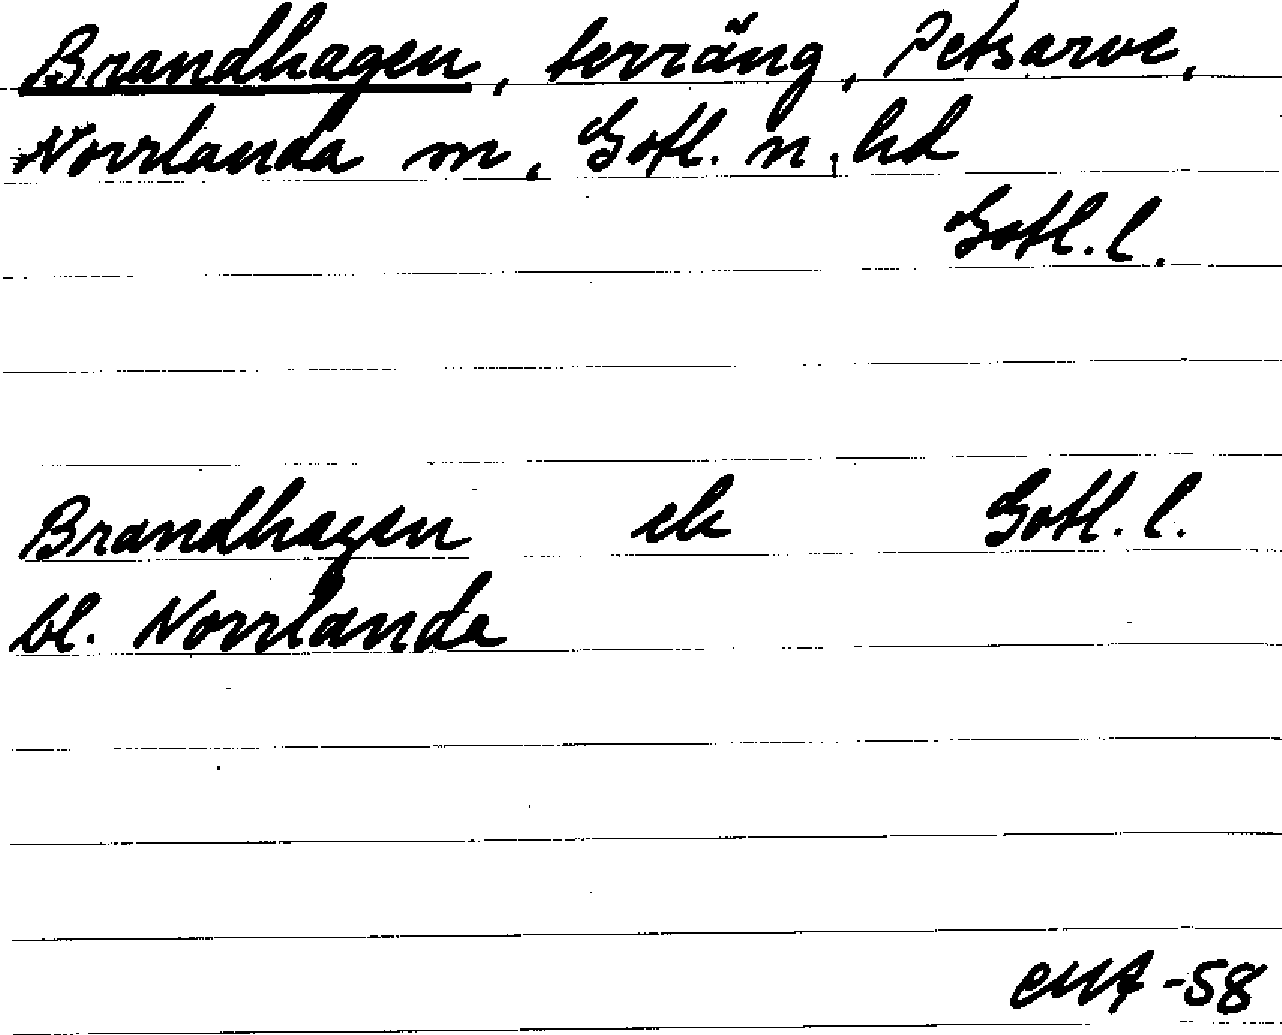 Brandhagen, terräng, Petsarve,
Norrlanda sn, Gotl. n. hd
Gotl. l.
Brandhagen ek Gotl. l.
bl. Norrlanda
-58